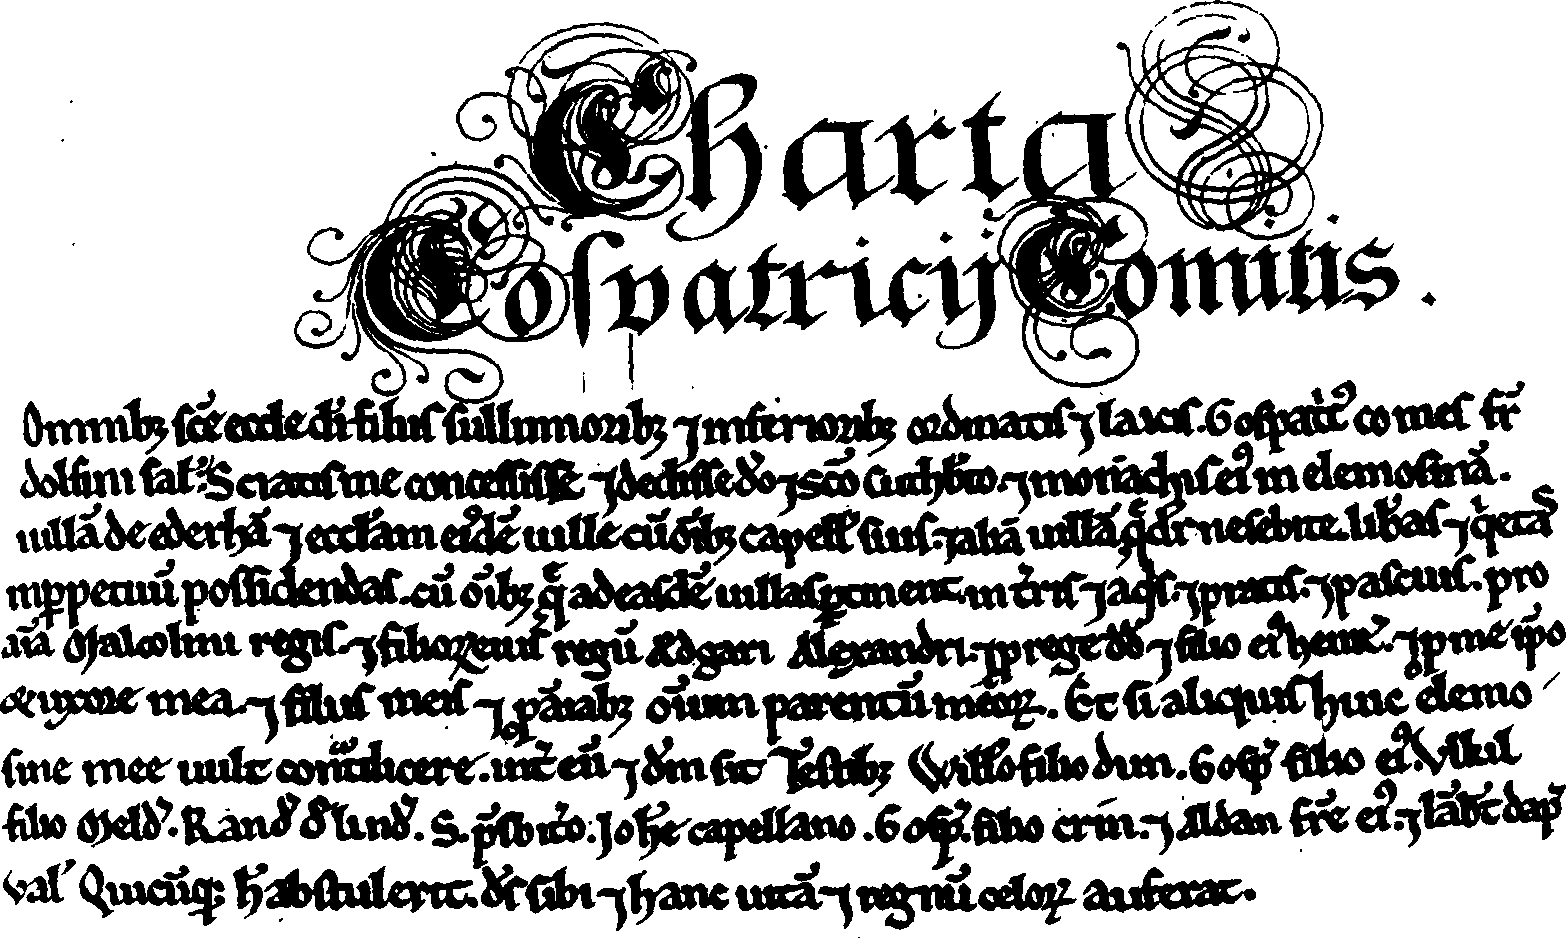 Charta
Gospatricij Comitis.
Omnibꝫ sc̃e eccle di filiis sullimioribꝫ ⁊ inferioribꝫ ordinatis ⁊ laicis. Gospatic᾽ comes fr̃
dolfini sal᾽. Sciatis me concessisse ⁊ dedisse do ⁊ sco Cuthb̃to. ⁊ monachis ei᾽ in elemosinã.
uillã de ederhã ⁊ eccl̃am ei᾽dẽ uille cũ õibꝫ capell᾽ suis. ⁊ aliã uillã q̃ dr̃ nesebite. lib̃as ⁊ q̃etas
inꝑpetuũ possidendas. cũ õibꝫ q̃ ad easdẽ uillas ꝑtinent. in t̃ris ⁊ aq̃s. ⁊ pratis. ⁊ pascuis. pro
aĩa Malcolmi regis. ⁊ filioꝝ eius regũ Ædgari Alexandri. ⁊ ꝓ rege dd̃ ⁊ filio ei᾽ henr᾽. ⁊ ꝓ me ip̃o
& uxore mea. ⁊ filiis meis ⁊ ꝓ ãiabꝫ oĩum parentũ meoꝝ. Et si aliquis hinc elemo
sine mee uult cont̃dicere. int̃ eũ ⁊ dm̃ sit Testibꝫ Will̃o filio dun. Gosp᾽ filio ei᾽ Vlkil
filio Meld᾽. Rand᾽ d᾽ lind᾽. S. p̃sbit̃o. Joh̃e capellano. Gosp᾽. filio crin. ⁊ Aldan fr̃e ei᾽. ⁊ lãb̃t dap᾽
val᾽ Quicũq; h̃ abstulerit. d̃s sibi ⁊ hanc uitã ⁊ regnũ celoꝝ auferat.